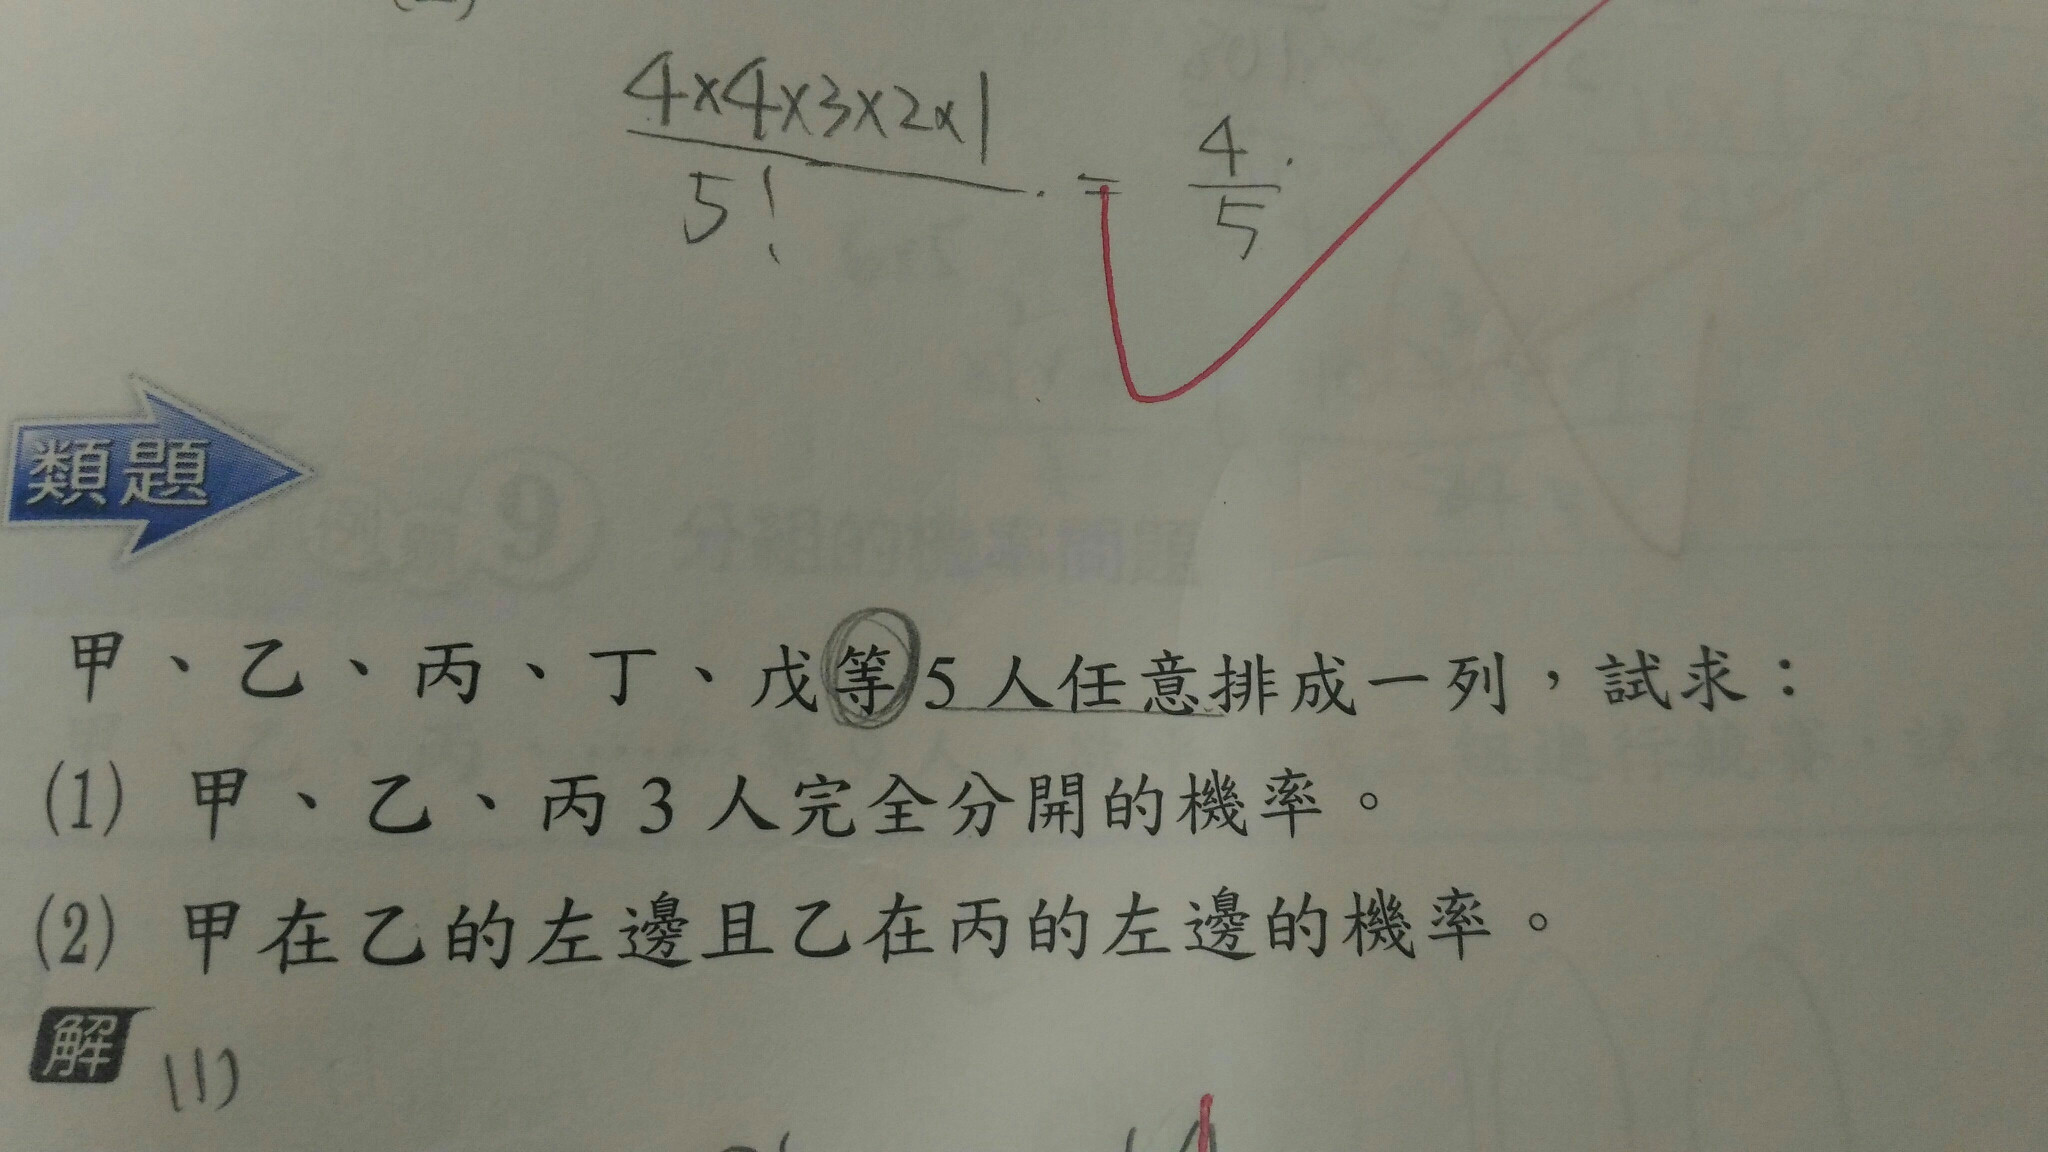 4×4×3×2×1
5!
=
4
5
類題
甲、乙、丙、丁、戊等5人任意排成一列,試求:
(1) 甲、乙、丙3人完全分開的機率。
(2) 甲在乙的左邊且乙在丙的左邊的機率。
解 (1)